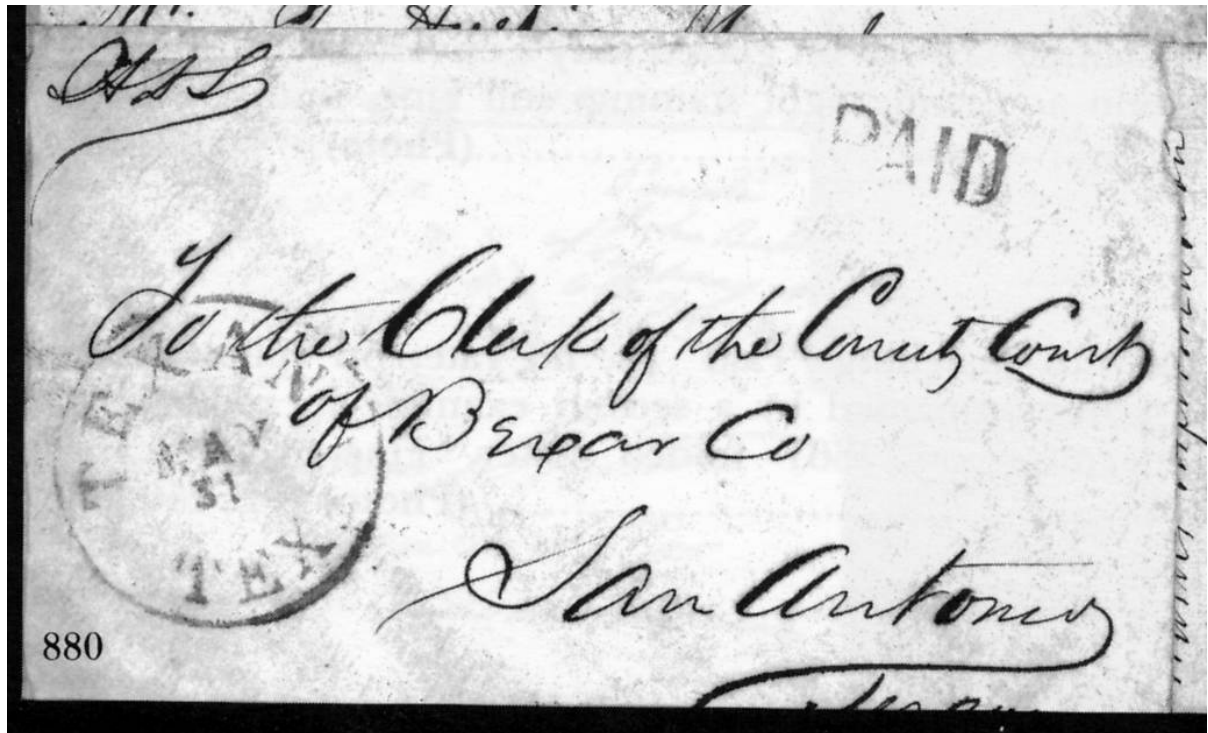 PAID
To the Clerk of the County Court
of Bexar Co
San Antonio
Texas
TEXANA
MAY
31
TEX
880
(Photo)